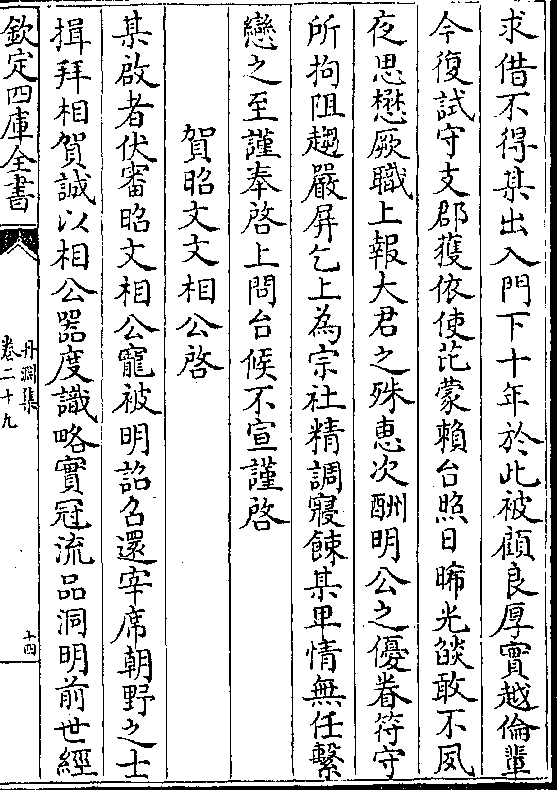 求借不得某出入門下十年於此被顧良厚實越倫輩
今復試守支郡獲依使芘蒙賴台照日晞光燄敢不夙
夜思懋厥職上報大君之殊恵次酬明公之優眷符守
所拘阻趨嚴屏乞上為宗社精調寢餗某卑情無任繫
戀之至謹奉啓上問台候不宣謹啓
賀昭文文相公啓
某啟者伏審昭文相公寵被明詔召還宰席朝野之士
揖拜相賀誠以相公器度識略實冠流品洞明前世經
欽定四庫全書
丹淵集
卷二十九
十四